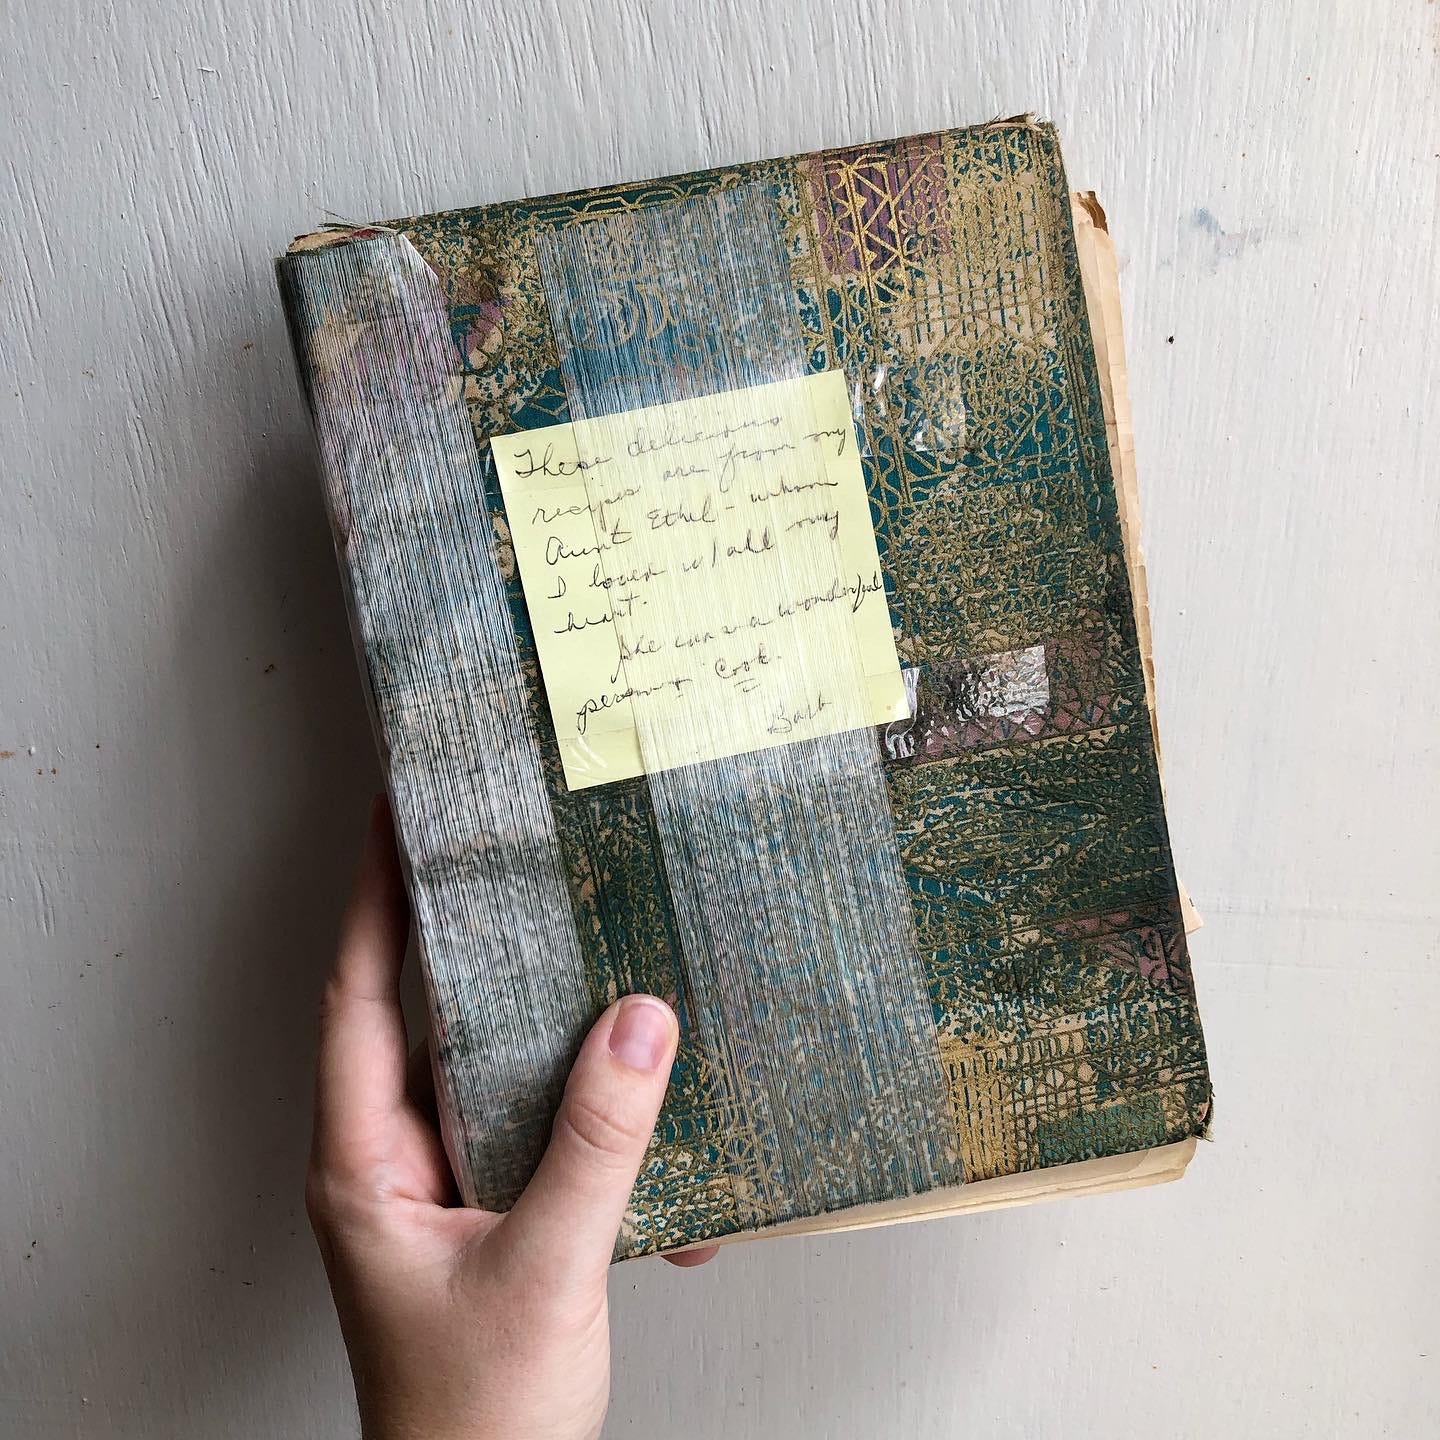 These delicious
recipes are from my
Aunt Ethel - whom
I loved w/all my
heart.
She was a wonderful
person + cook.
Barb